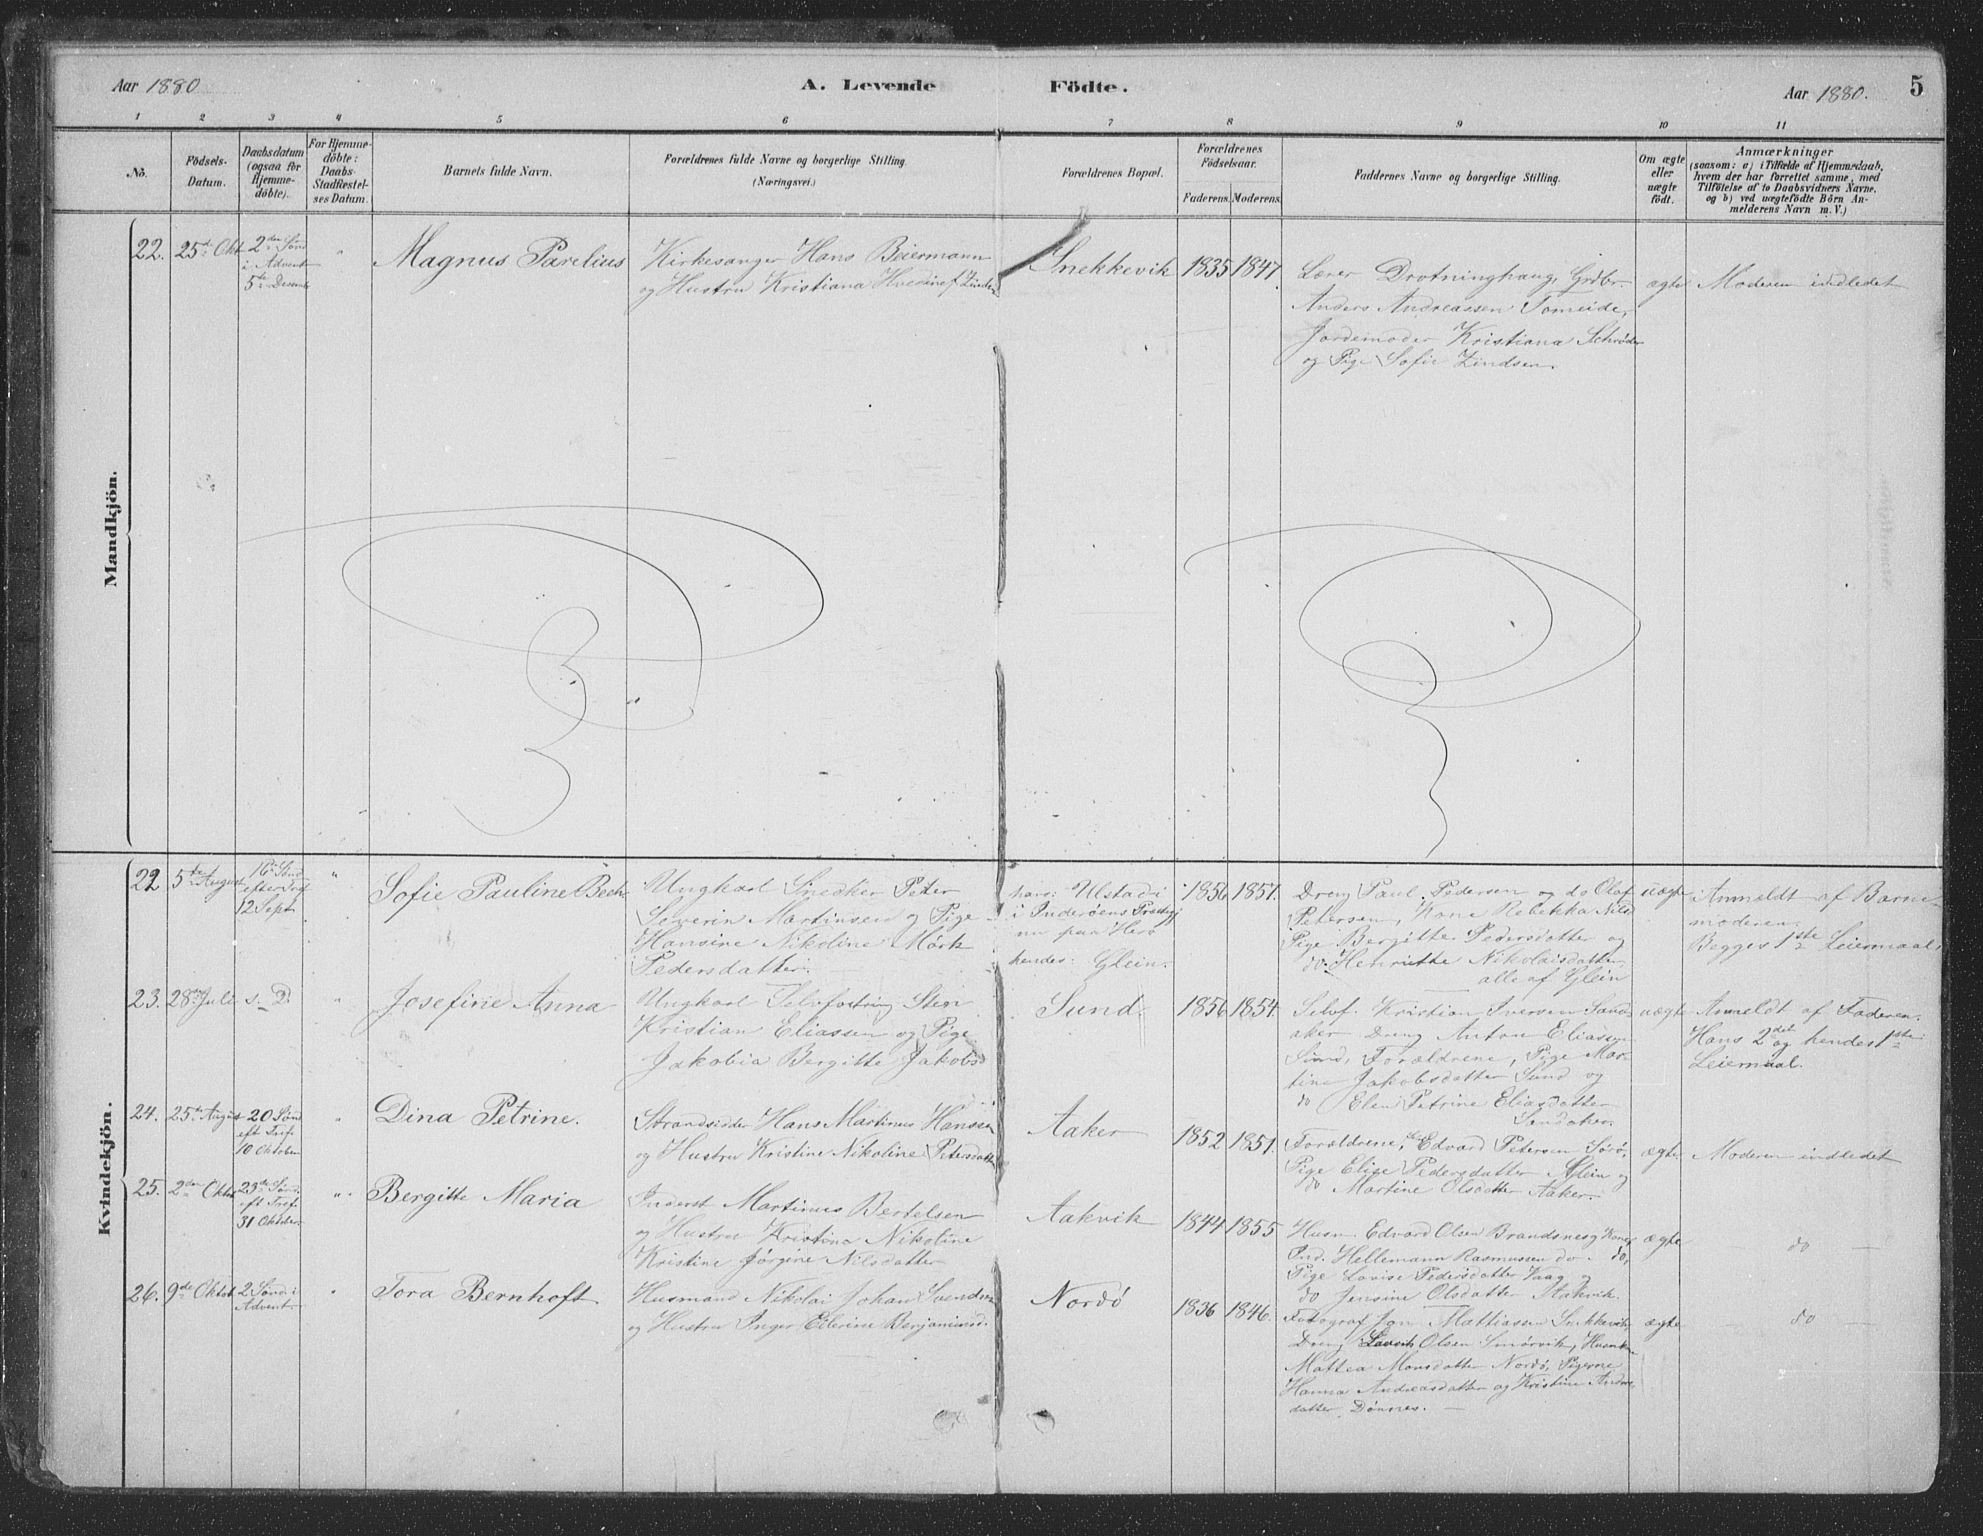 Aar 1880
A. Levende
Födte.
Aar 1880.
5
1 2 3 4 5 6 7 8 9 10 11
No.
Födsels-
Datum.
Daabsdatum
(ogsaa for
Hjemme-
döbte).
For Hjemme-
döbte:
Daabs-
Stadfæstel-
ses Datum.
Barnets fulde Navn.
Forældrenes fulde Navne og borgerlige Stilling.
(Næringsvei.)
Forældrenes Bopæl.
Forældrenes
Födselsaar.
Faderens. Moderens.
Faddernes Navne og borgerlige Stilling.
Om ægte
eller
uægte
födt.
Anmærkninger
(saasom: a) i Tilfælde af Hjemmedaab,
hvem der har forrettet samme, med
Tilföielse af to Daabsvidners Navne,
og b) ved uægtefödte Börn An-
melderens Navn m. V.)
Mandkjön.
22.
25de Okt
2den Sönd
i Advent
5te Decemb
"
Magnus Parelius
Kirkesanger Hans Beiermann
og Hustru Kristiana
Snekkevik
1835
1847
Lærer Drotninghaug, Grdbr.
Anders Andreassen Tomeide,
Jordemoder Kristiana Schrøder
og Pige Sofie Zindsen.
ægte
Moderen indledet
Kvindekjön.
22
5te August
16de Sönd
efter Tref
12 Sept.
"
Sofie Pauline Bech
Ungkarl Snedker Peter
Severin Martinsen og Pige
Hansine Nikoline Mörk
Pedersdatter.
hans: Ulstad i
i Inderöens Prestgj
nu paa Herö
hendes: Glein.
1856
1851.
Dreng Paul Pedersen og do Olaf
Petersen, Kone Rebekka Nilsd
Pige Bergitte Pedersdatter og
do Henriette Nikolaisdatter
alle af Glein
uægte
Anmeldt af Barne-
moderen.
Begges 1ste Leiermaal.
23.
28de Juli
s. D.
"
Josefine Anna
Ungkarl Selvfostring Sten
Kristian Eliassen og Pige
Jakobia Bergitte Jakobsd
Sund.
1856
1854.
Selvf. Kristian Iversen Sand-
aker Dreng Anton Eliassen
Sund, Forældrene, Pige Mar-
tine Jakobsdatter Sund og
do Elen Petrine Eliasdatter
Sandaker.
uægte
Anmeldt af Faderen.
Hans 2det og hendes 1ste
Leiermaal.
24.
25de August
20 Sönd
eft Tref.
10 Oktober
"
Dina Petrine.
Strandsidder Hans Martinus Hansen
og Hustru Kristine Nikoline Petersdatter
Aaker
1852
1851.
Forældrene, Edvard Petersen Sörö,
Pige Elise Pedersdatter Glein og
do Martine Olsdatter Aaker.
ægte
Moderen indledet
25.
2den Oktbr
23de Sönd.
eft Tref.
31 Oktober
"
Bergitte Maria
Inderst Martinus Bertelsen
og Hustru Kristina Nikoline
Kristine Jörgine Nilsdatter
Aakvik
1844
1855
Husm. Edvard Olsen Brandsnes og Kone,
Ind. Hellemann Rasmussen do. do,
Pige Lovise Pedersdatter Vaag og
do Jensine Olsdatter Aakvik.
ægte
do
26.
9de Oktob
2 Sönd i
Advent
"
Tora Bernhoft.
Husmand Nikolai Johan Svendsen
og Hustru Inger Ellerine Benjaminsd.
Nordö
1836
1846.
Fotograf Jan Mattiassen Snekkevik,
Dreng Olsen Smörvik,
Mattea Monsdatter Nordö, Pigerne
Hanna Andreasdatter og Kristine Andrs
datter, Dönnes.
ægte
do